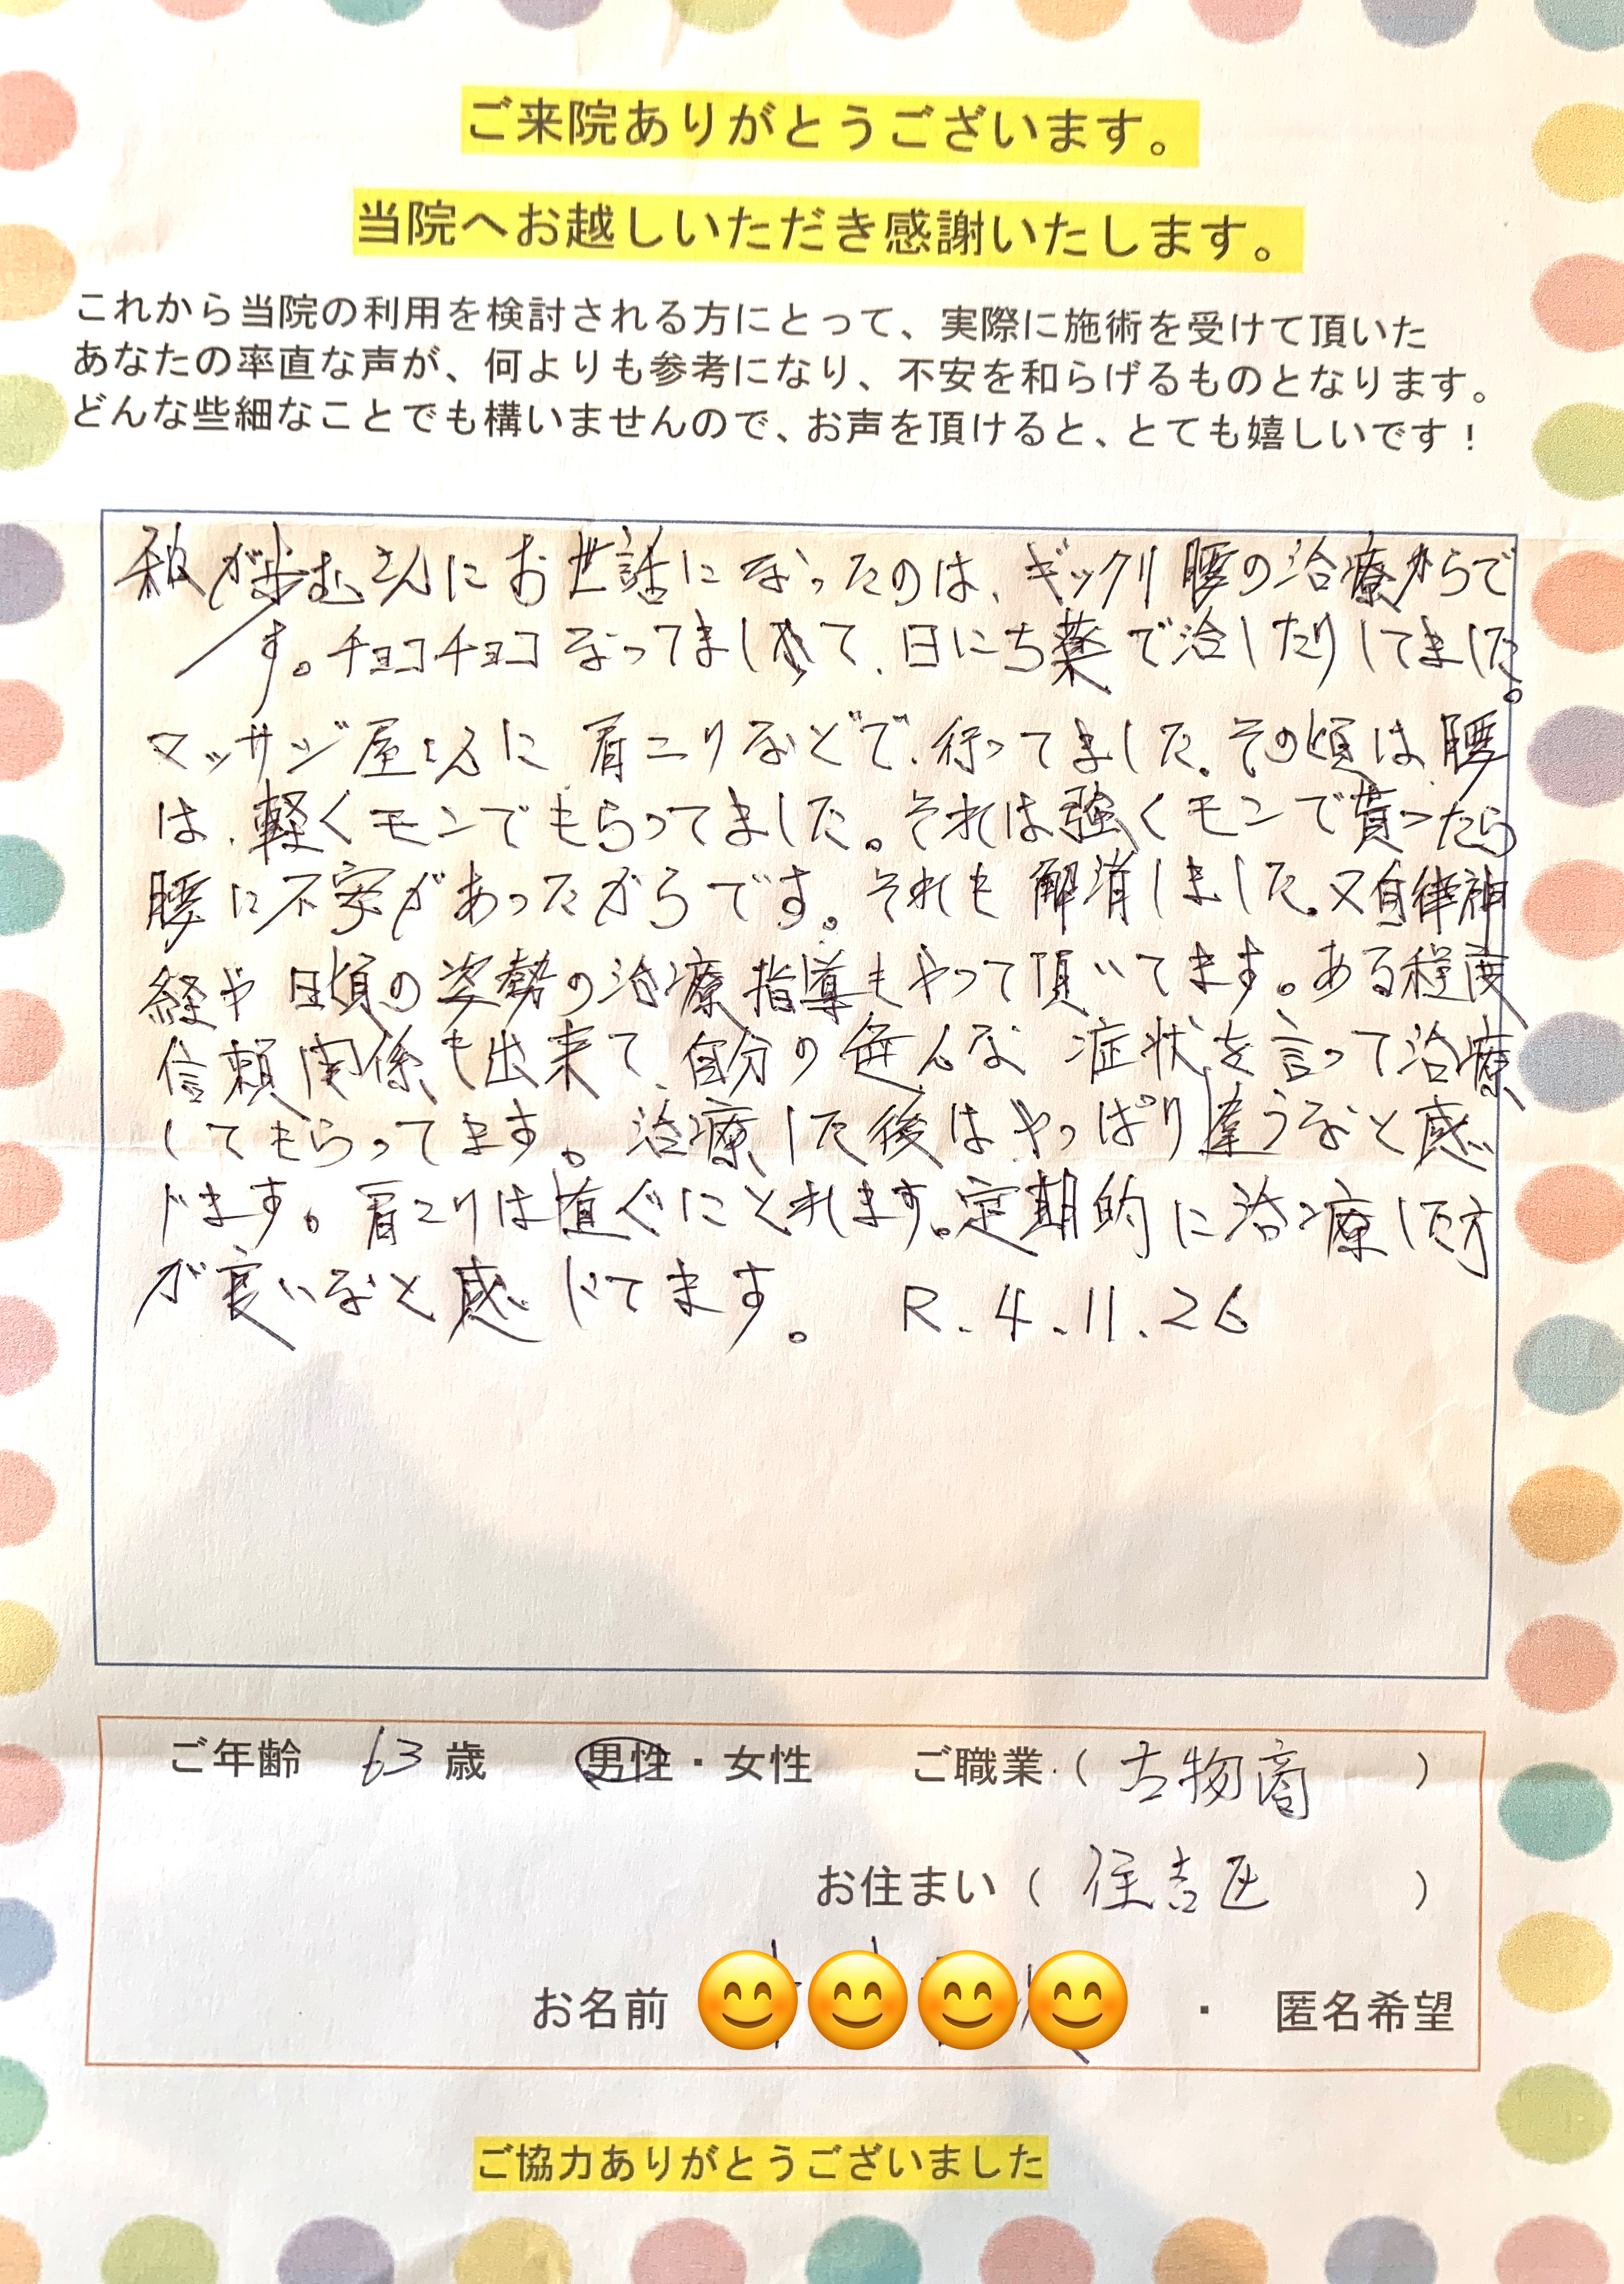 ご来院ありがとうございます。
当院へお越しいただき感謝いたします。
これから当院の利用を検討される方にとって、実際に施術を受けて頂いた
あなたの率直な声が、何よりも参考になり、不安を和らげるものとなります。
どんな些細なことでも構いませんので、お声を頂けると、とても嬉しいです！
私が歩むさんにお世話になったのは、ギックリ腰の治療からで
す。チョコチョコなってまして、日にち薬で治したりしてました。
マッサジ屋さんに肩コリなどで、行ってました。その頃は、腰
は、軽くモンでもらってました。それは強くモンで貰ったら
腰に不安があったからです。それも解消しました。又自律神
経や日頃の姿勢の治療指導もやって頂いてます。ある程度
信頼関係も出来て、自分の色んな症状を言って治療
してもらってます。治療した後はやっぱり違うなと感
じます。肩コリは直ぐにとれます。定期的に治療した方
が良いなと感じてます。 R.4.11.26
ご年齢 63歳 男性・女性 ご職業（古物商）
お住まい（住吉区）
お名前 ・ 匿名希望
ご協力ありがとうございました